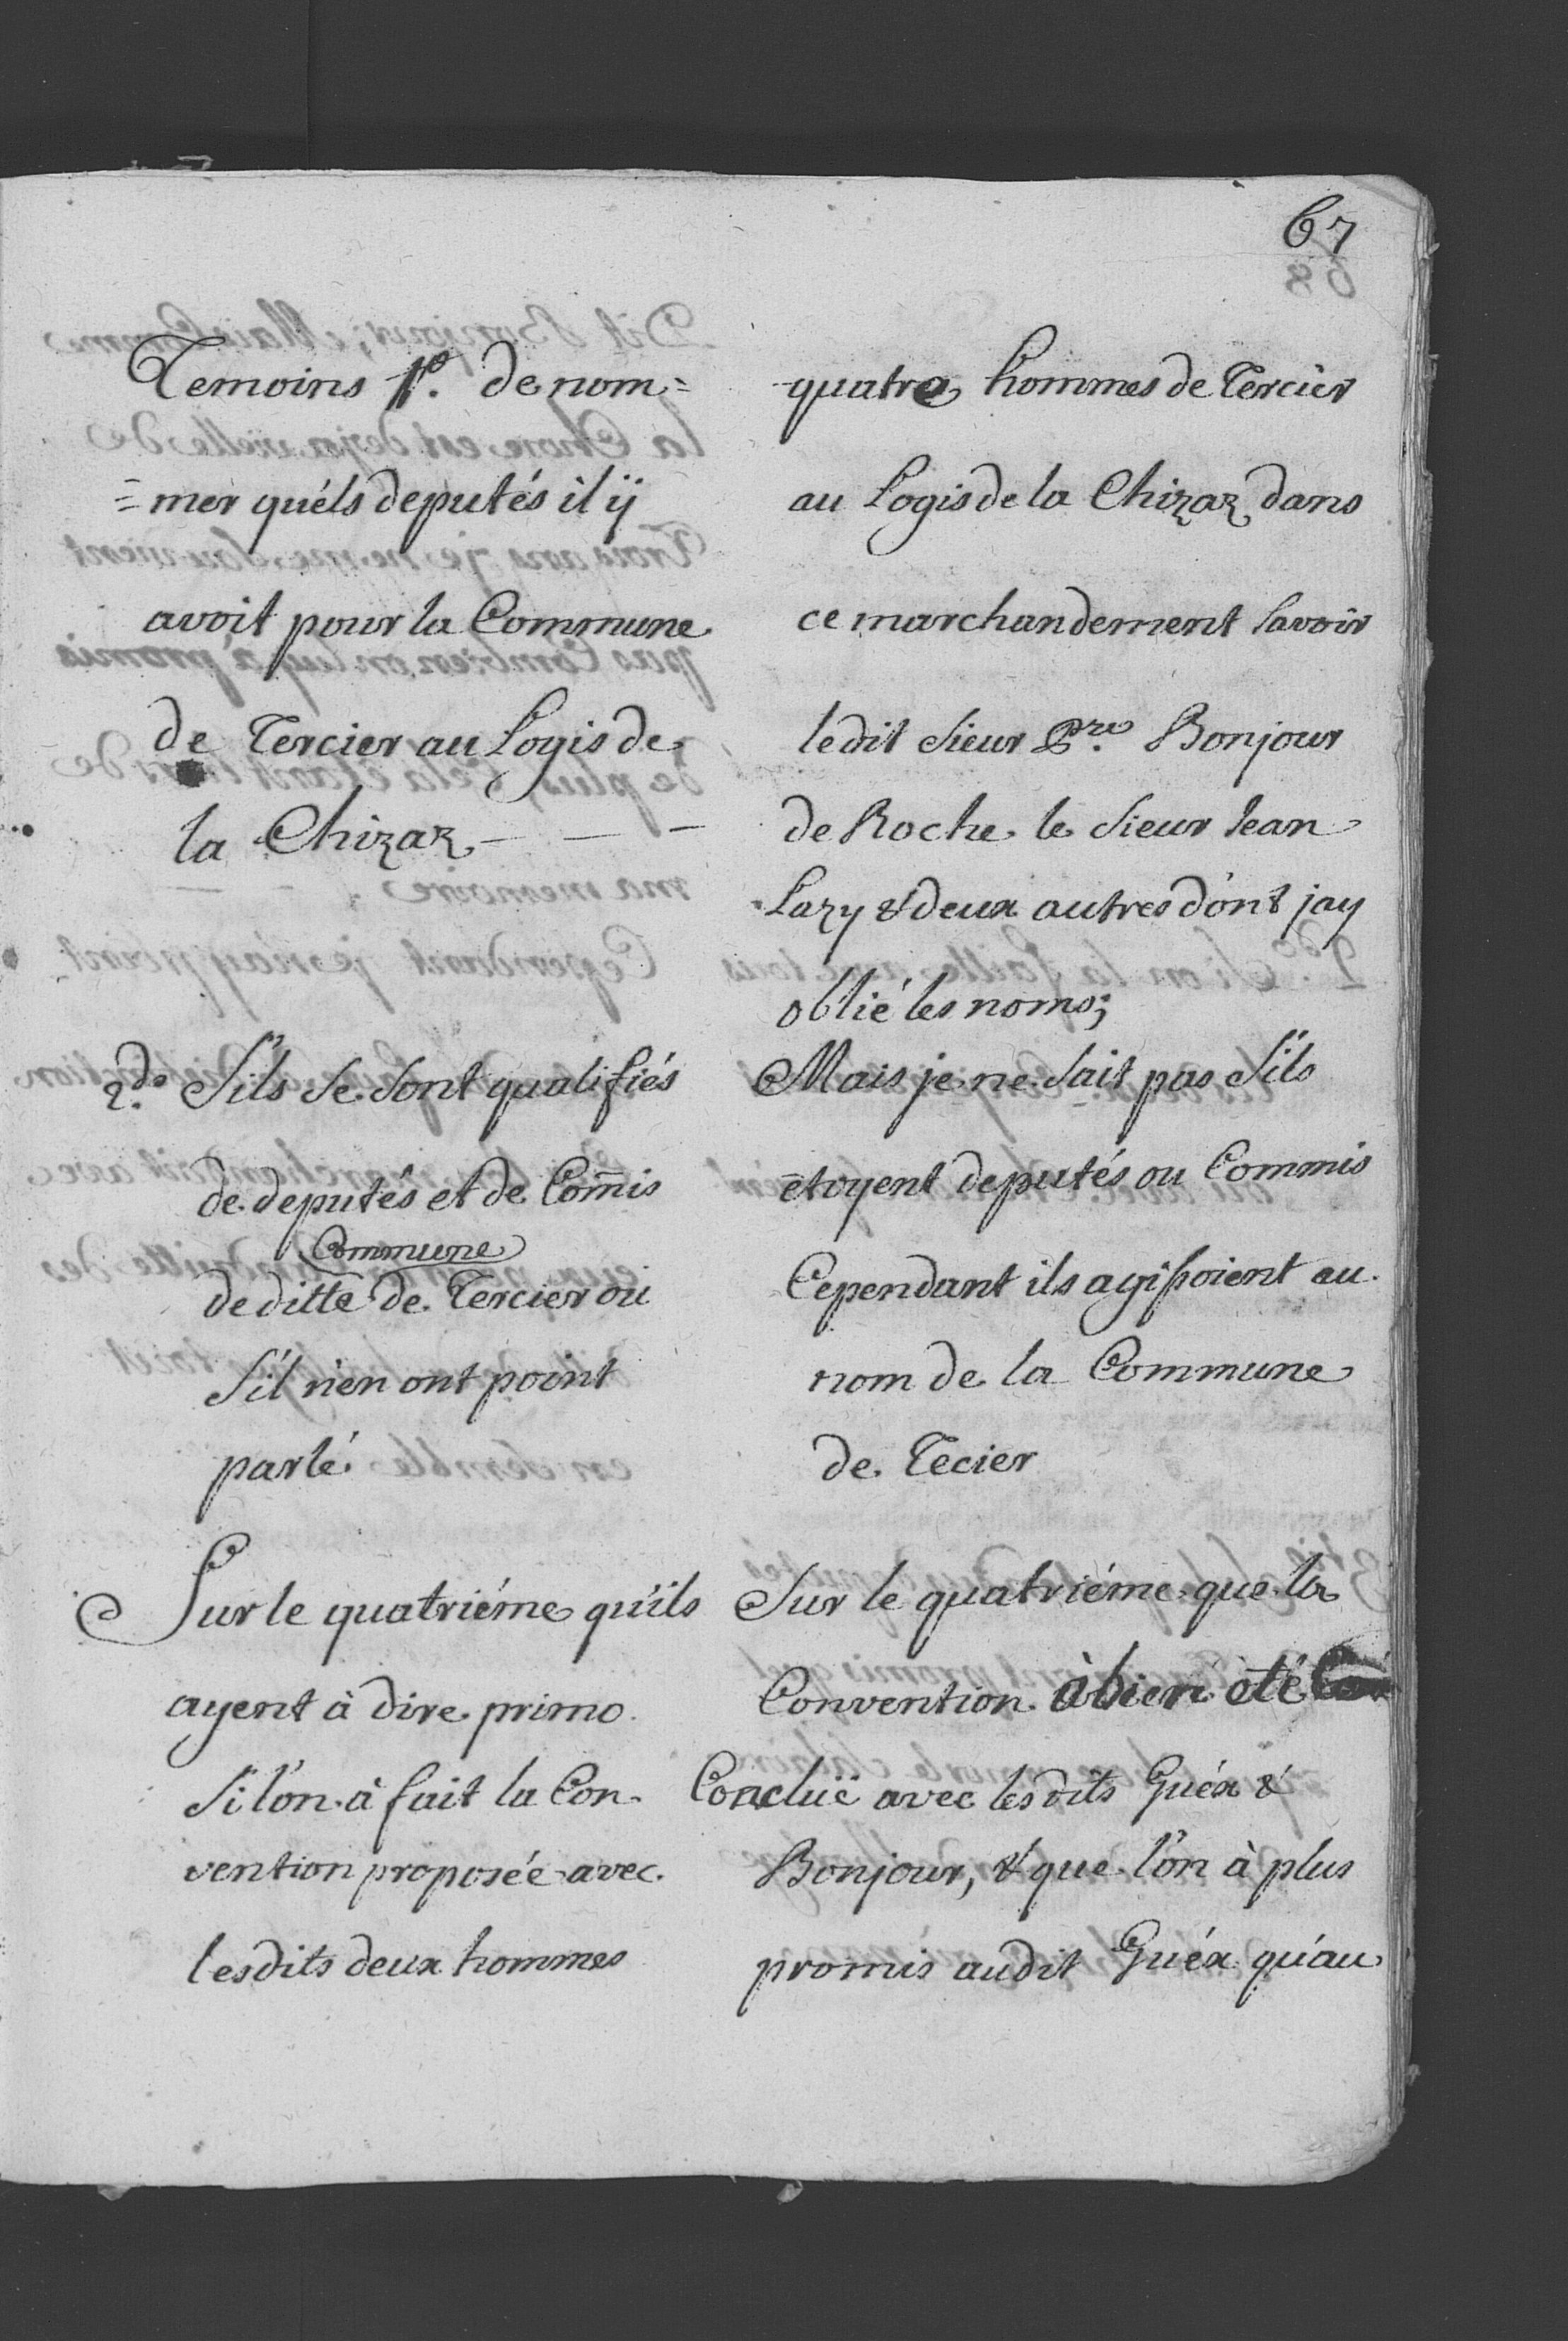 67
Temoins 1º. de nom=
=mer quéls deputés il ÿ
avoit pour la Commune
de Tercier au Logis de
la Chizaz - - -
2.do S'ils se sont qualifiés
de deputés et de Com̄is
Commune
de ditte de Tercier ou
s'il n'en ont point
parlé
Sur le quatriéme qu'ils
ayent à dire primo
Si l'on à fait la Con-
vention proposée avec
lesdits deux hommes
quatre hommes de Tercier
au Logis de la Chizaz dans
ce marchandement savoir
ledit Sieur Pre. Bonjour
de Roche le Sieur Jean
Lazy & deux autres dónt jay
oblié les noms;
Mais je ne sait pas s'ils
etoyent deputés ou Commis
Cependant ils agissoient au
nom de la Commune
de Tecier
Sur le quatriéme que la
Convention à bien été
Concluë avec lesdits Guéx &
Bonjour, & que l'on à plus
promis audit Guéx qu'au